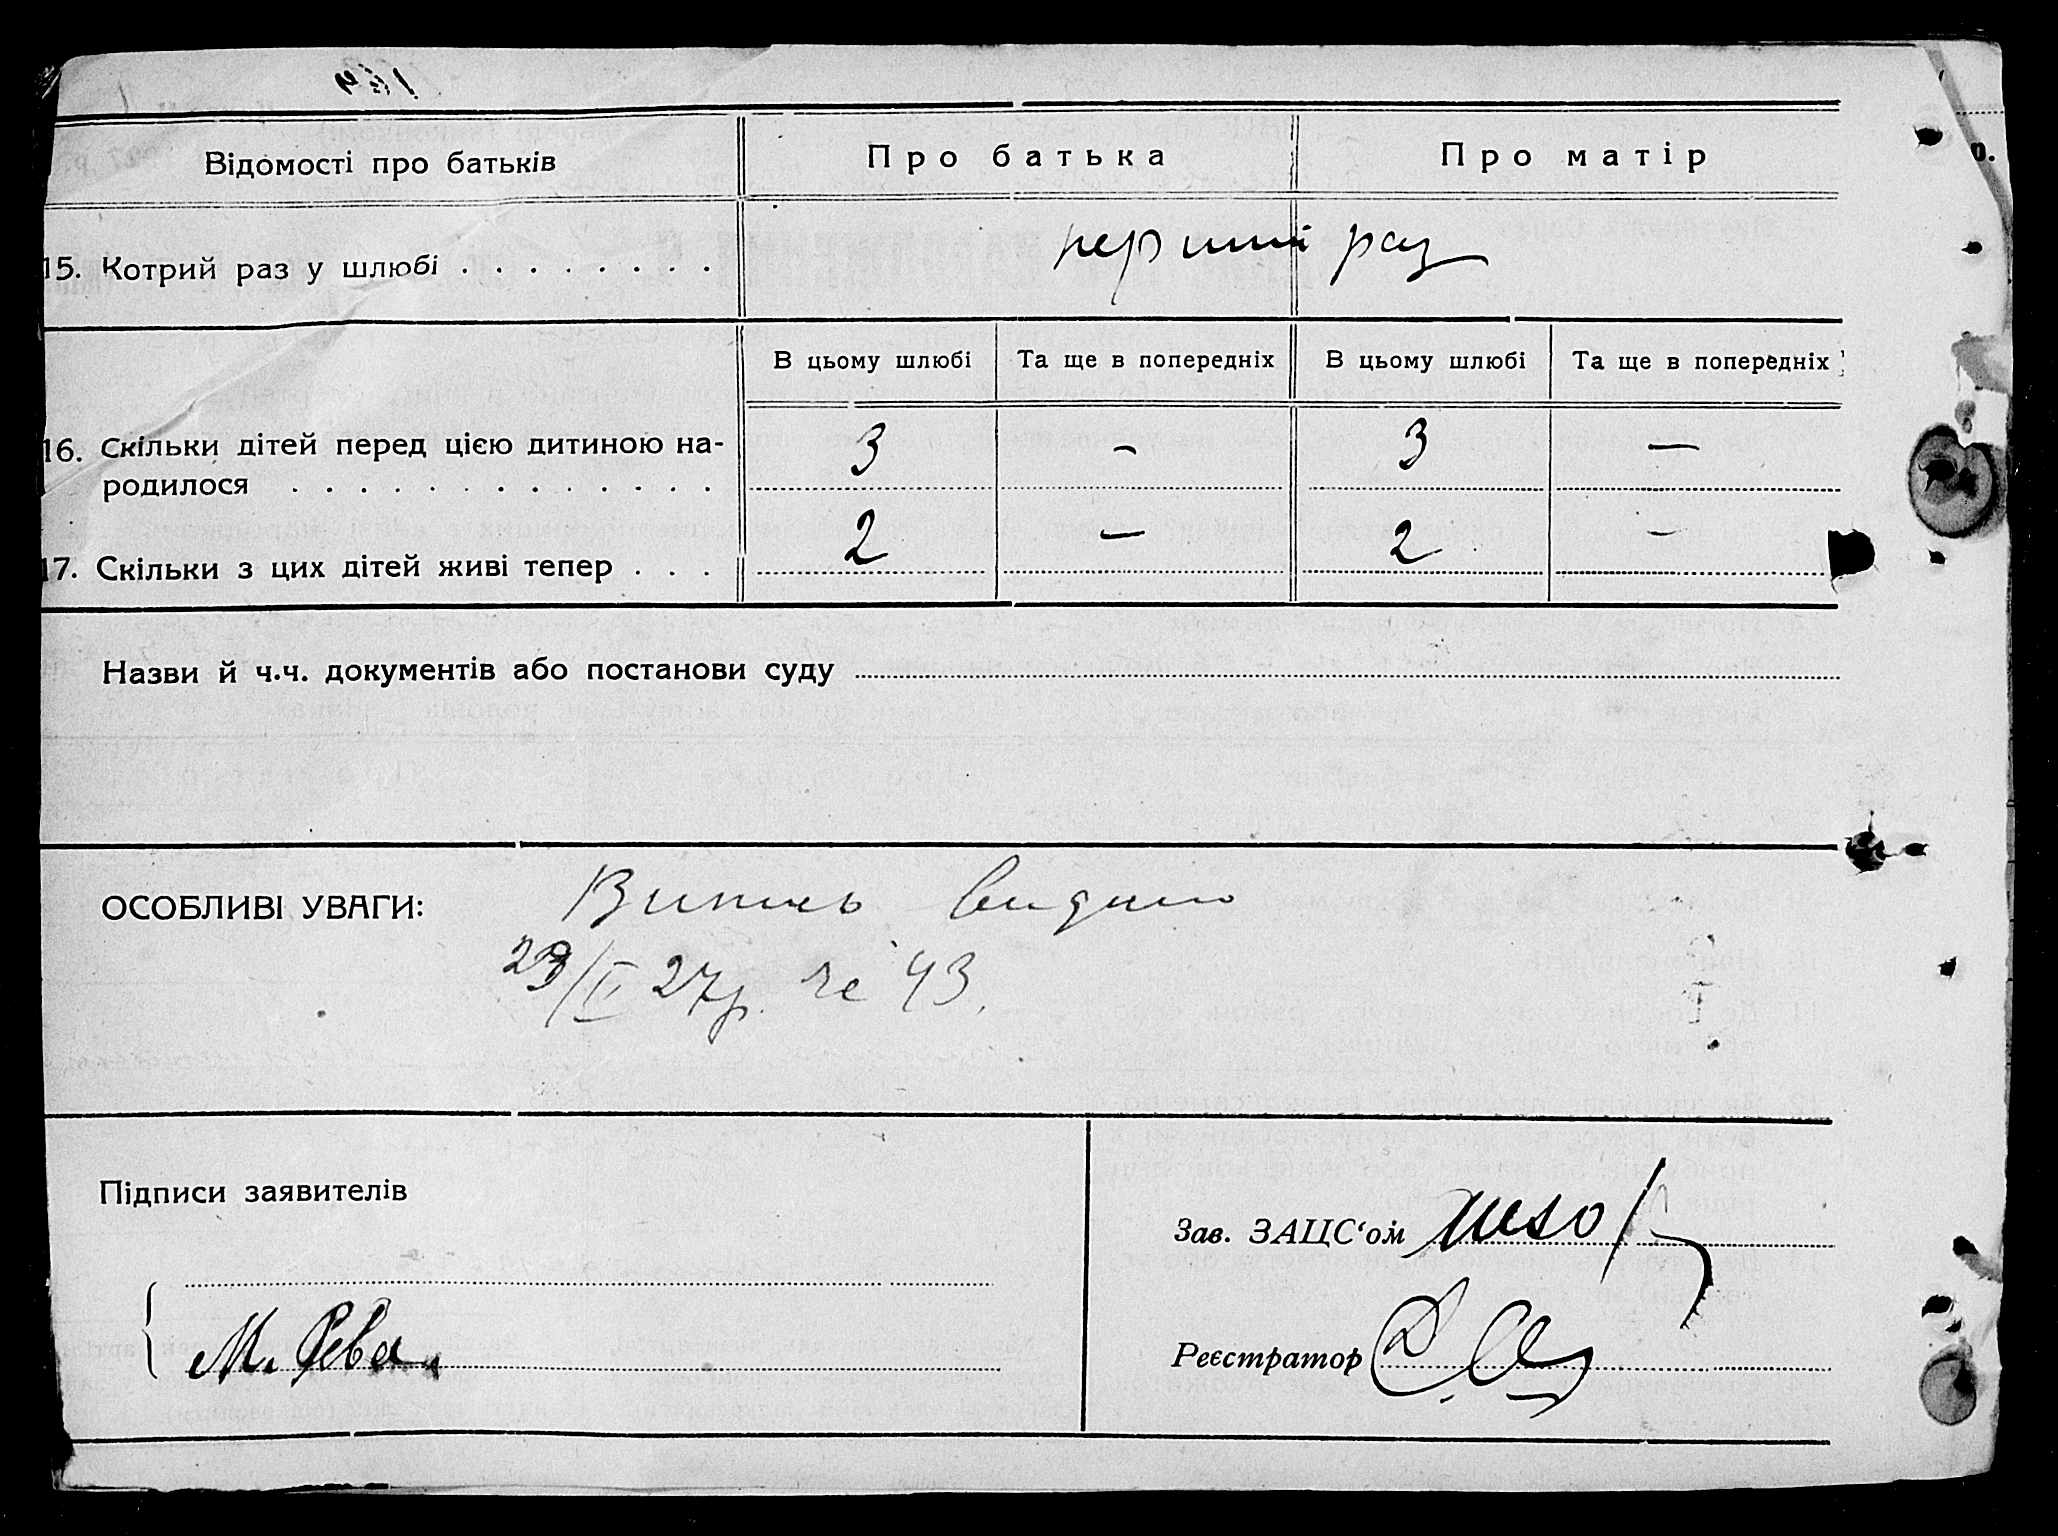 Відомості про батьків
Про батька
Про матір
15. Котрий раз у шлюбі . . . . . . . .
перший раз
В цьому шлюбі
Та ще в попередніх
В цьому шлюбі
Та ще в попередніх
16. Скільки дітей перед цією дитиною на-
родилося . . . . . . . . . . . . .
3 - 3 -
17. Скільки з цих дітей живі тепер . . .
2 - 2 -
Назви й ч.ч. документів або постанови суду
ОСОБЛИВІ УВАГИ:
Витяг видано
27р. № 43.
Підписи заявителів
М. Рева.
Зав. ЗАЦС‘ом
Реєстратор